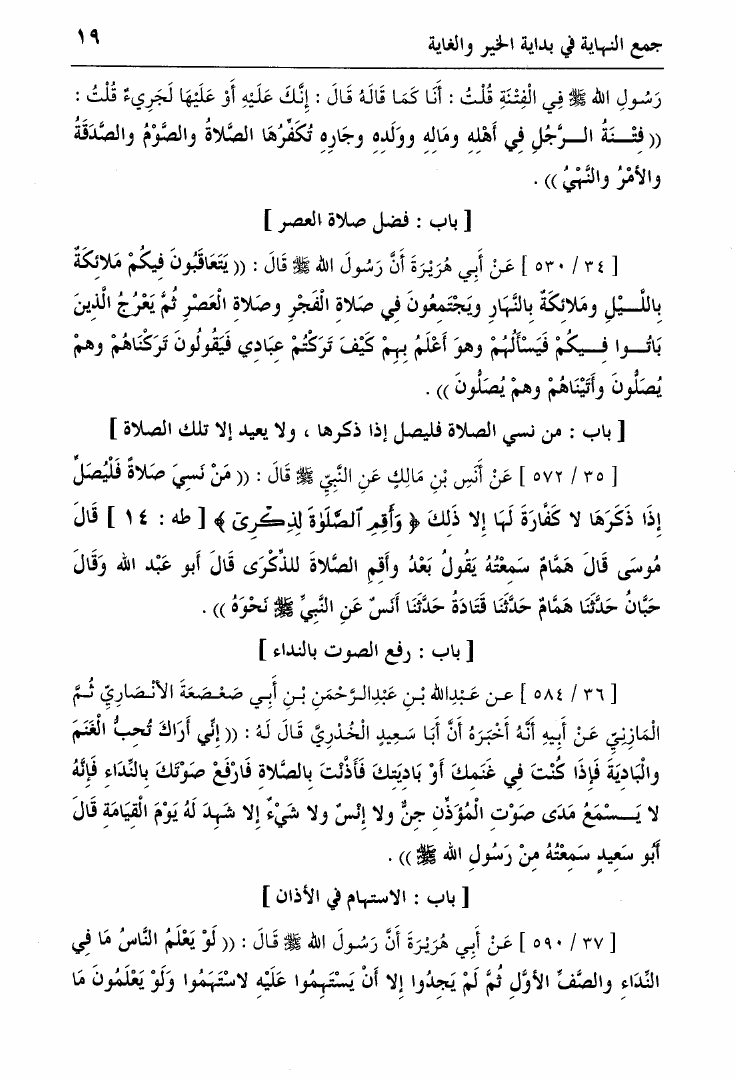 جمع النهاية في بداية الخير والغاية ١٩
رَسُولِ الله ﷺ فِي الْفِتْنَةِ قُلْتُ : أَنَا كَمَا قَالَهُ قَالَ : إِنَّكَ عَلَيْهِ أَوْ عَلَيْهَا لَجَرِيءٌ قُلْتُ :
(( فِتْـــنَةُ الـــرَّجُلِ فِي أَهْلِهِ ومَالِهِ ووَلَدِهِ وجَارِهِ تُكَفِّرُهَا الصَّلاةُ والصَّوْمُ والصَّدَقَةُ
والأمْرُ والنَّهْيُ )) .
[ باب : فضل صلاة العصر ]
[ ٣٤ / ٥٣٠ ] عَنْ أَبِي هُرَيْرَةَ أَنَّ رَسُولَ الله ﷺ قَالَ : (( يَتَعَاقَبُونَ فِيكُمْ مَلائِكَةٌ
بِاللَّـــيْلِ ومَلائِكَةٌ بِالنَّهَارِ ويَجْتَمِعُونَ فِي صَلاةِ الْفَجْرِ وصَلاةِ الْعَصْرِ ثُمَّ يَعْرُجُ الَّذِينَ
بَاتُـــوا فِـــيكُمْ فَيَسْأَلُهُمْ وهوَ أَعْلَمُ بِهِمْ كَيْفَ تَرَكْتُمْ عِبَادِي فَيَقُولُونَ تَرَكْنَاهُمْ وهمْ
يُصَلُّونَ وأَتَيْنَاهُمْ وهمْ يُصَلُّونَ )) .
[ باب : من نسي الصلاة فليصل إذا ذكرها ، ولا يعيد إلا تلك الصلاة ]
[ ٣٥ / ٥٧٢ ] عَنْ أَنَسِ بْنِ مَالِكٍ عَنِ النَّبِيِّ ﷺ قَالَ : (( مَنْ نَسِيَ صَلاةً فَلْيُصَلِّ
إِذَا ذَكَرَهَا لا كَفَّارَةَ لَهَا إِلا ذَلِكَ ﴿ وَأَقِمِ ٱلصَّلَوٰةَ لِذِكْرِىٓ ﴾ [ طه : ١٤ ] قَالَ
مُوسَى قَالَ هَمَّامٌ سَمِعْتُهُ يَقُولُ بَعْدُ وأَقِمِ الصَّلاةَ للذِّكْرَى قَالَ أَبو عَبْد الله وقَالَ
حَبَّانُ حَدَّثَنَا هَمَّامٌ حَدَّثَنَا قَتَادَةُ حَدَّثَنَا أَنَسٌ عَنِ النَّبِيِّ ﷺ نَحْوَهُ )) .
[ باب : رفع الصوت بالنداء ]
[ ٣٦ / ٥٨٤ ] عـن عَـبْدِالله بْـنِ عَبْدِالـرَّحْمَنِ بْـنِ أَبِـي صَـعْصَعَةَ الأنْـصَارِيِّ ثُـمَّ
الْمَازِنِيِّ عَـنْ أَبِيهِ أَنَّهُ أَخْبَرَهُ أَنَّ أَبَا سَـعِيدٍ الْخُدْرِيَّ قَـالَ لَهُ : (( إِنِّي أَرَاكَ تُحِبُّ الْغَنَمَ
والْبَادِيَةَ فَإِذَا كُنْتَ فِي غَنَمِكَ أَوْ بَادِيَتِكَ فَأَذَّنْتَ بِالصَّلاةِ فَارْفَعْ صَوْتَكَ بِالنِّدَاءِ فَإِنَّهُ
لا يَـــسْمَعُ مَدَى صَوْتِ الْمُؤَذِّنِ جِنٌّ ولا إِنْسٌ ولا شَيْءٌ إِلا شَهِدَ لَهُ يَوْمَ الْقِيَامَةِ قَالَ
أَبُو سَعِيدٍ سَمِعْتُهُ مِنْ رَسُولِ الله ﷺ )) .
[ باب : الاستهام في الأذان ]
[ ٣٧ / ٥٩٠ ] عَنْ أَبِي هُرَيْرَةَ أَنَّ رَسُولَ الله ﷺ قَالَ : (( لَوْ يَعْلَمُ النَّاسُ مَا فِي
النِّدَاءِ والصَّفِّ الأوَّلِ ثُمَّ لَمْ يَجِدُوا إِلا أَنْ يَسْتَهِمُوا عَلَيْهِ لاسْتَهَمُوا ولَوْ يَعْلَمُونَ مَا